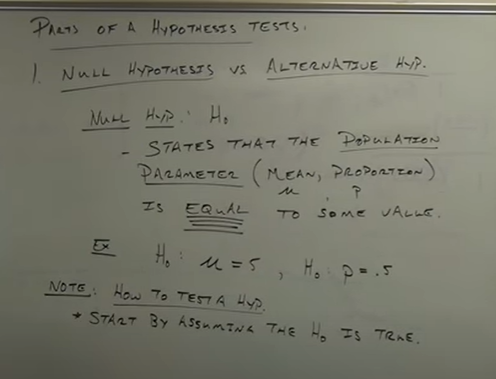 PARTS OF A HYPOTHESIS TESTS.
1. NULL HYPOTHESIS VS ALTERNATIVE HYP.
NULL HYP.: H₀
- STATES THAT THE POPULATION
PARAMETER (MEAN, PROPORTION)
μ, p
IS EQUAL TO SOME VALUE.
EX H₀: μ = 5, H₀: p = .5
NOTE: HOW TO TEST A HYP.
* START BY ASSUMING THE H₀ IS TRUE.